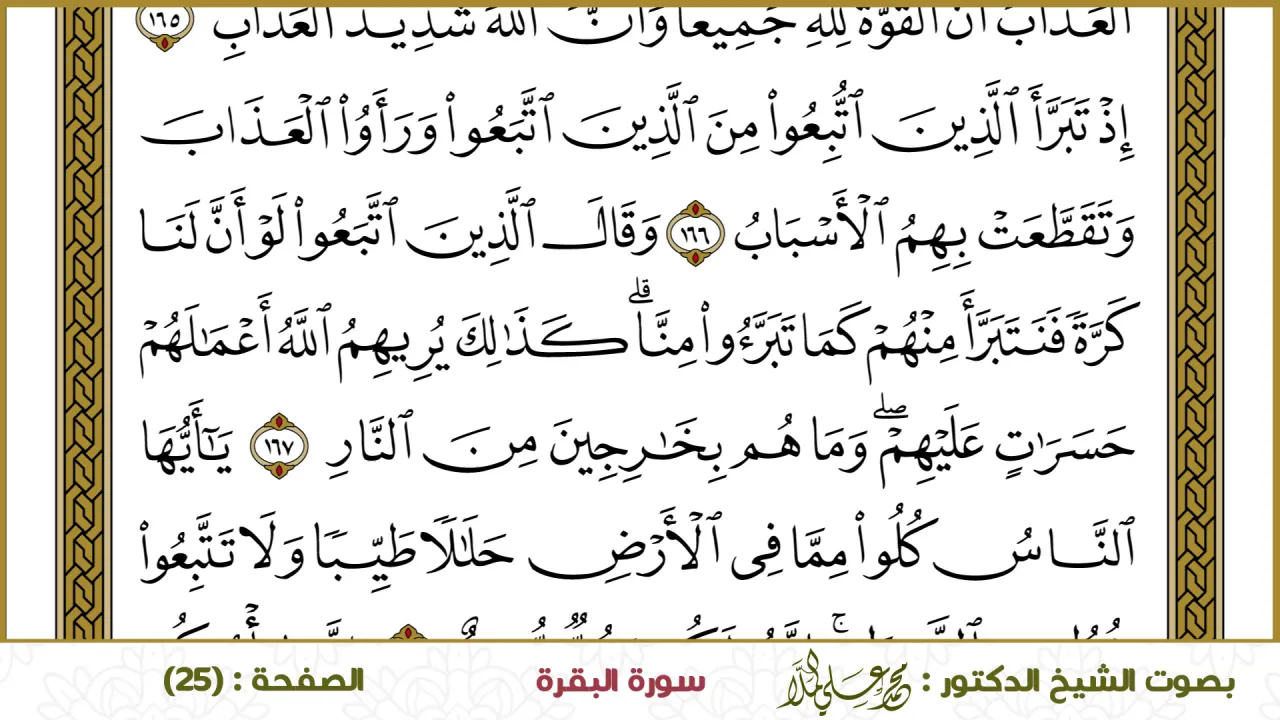 ٱلْعَذَابَ أَنَّ ٱلْقُوَّةَ لِلَّهِ جَمِيعًا وَأَنَّ ٱللَّهَ شَدِيدُ ٱلْعَذَابِ ١٦٥
إِذْ تَبَرَّأَ ٱلَّذِينَ ٱتُّبِعُوا۟ مِنَ ٱلَّذِينَ ٱتَّبَعُوا۟ وَرَأَوُا۟ ٱلْعَذَابَ
وَتَقَطَّعَتْ بِهِمُ ٱلْأَسْبَابُ ١٦٦ وَقَالَ ٱلَّذِينَ ٱتَّبَعُوا۟ لَوْ أَنَّ لَنَا
كَرَّةً فَنَتَبَرَّأَ مِنْهُمْ كَمَا تَبَرَّءُوا۟ مِنَّا ۗ كَذَٰلِكَ يُرِيهِمُ ٱللَّهُ أَعْمَـٰلَهُمْ
حَسَرَٰتٍ عَلَيْهِمْ ۖ وَمَا هُم بِخَـٰرِجِينَ مِنَ ٱلنَّارِ ١٦٧ يَـٰٓأَيُّهَا
ٱلنَّاسُ كُلُوا۟ مِمَّا فِى ٱلْأَرْضِ حَلَـٰلًا طَيِّبًا وَلَا تَتَّبِعُوا۟
بصوت الشيخ الدكتور : محمد علي الملا سورة البقرة الصفحة : (25)